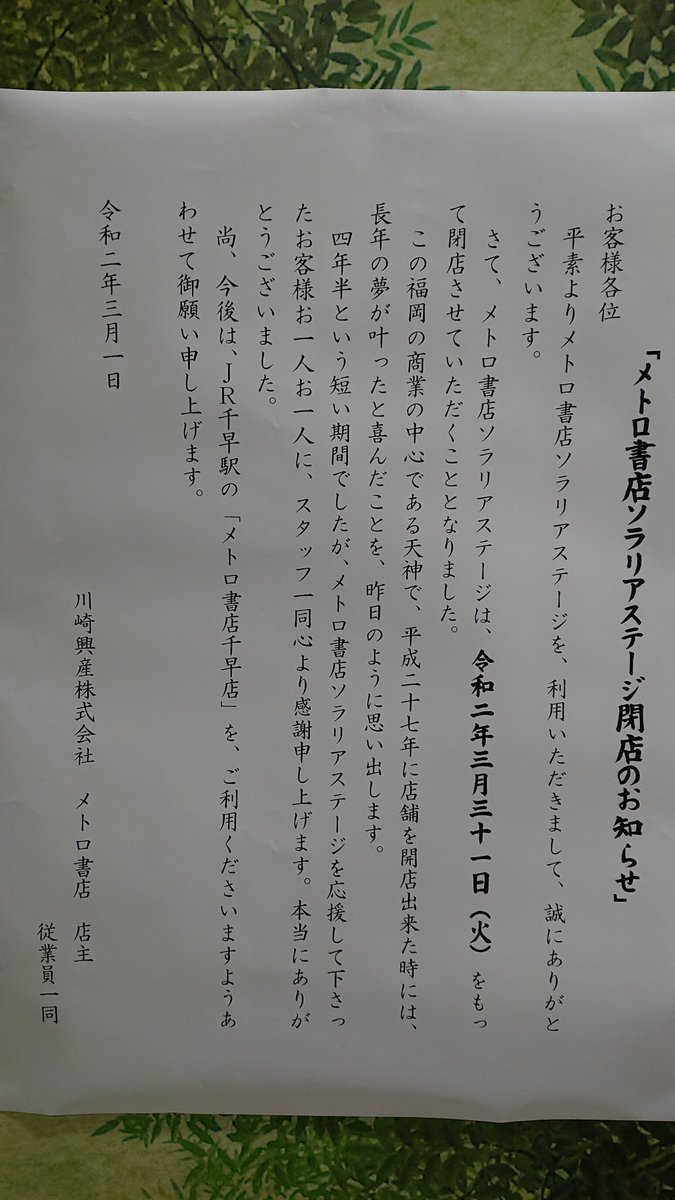 「メトロ書店ソラリアステージ閉店のお知らせ」
お客様各位
平素よりメトロ書店ソラリアステージを、利用いただきまして、誠にありがと
うございます。
さて、メトロ書店ソラリアステージは、令和二年三月三十一日（火）をもっ
て閉店させていただくこととなりました。
この福岡の商業の中心である天神で、平成二十七年に店舗を開店出来た時には、
長年の夢が叶ったと喜んだことを、昨日のように思い出します。
四年半という短い期間でしたが、メトロ書店ソラリアステージを応援して下さっ
たお客様お一人お一人に、スタッフ一同心より感謝申し上げます。本当にありが
とうございました。
尚、今後は、ＪＲ千早駅の「メトロ書店千早店」を、ご利用くださいますようあ
わせて御願い申し上げます。
令和二年三月一日
川崎興産株式会社　メトロ書店　店主
従業員一同